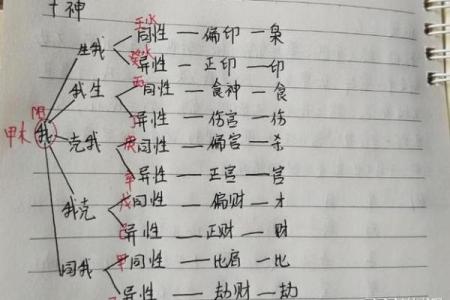 十神
壬水 同性 — 偏印 — 枭
生我
癸水 异性 — 正印 — 印
丙 同性 — 食神 — 食
我生
丁 异性 — 伤宫 — 伤
阳
甲木 我 克我 庚 同性 — 偏宫 — 杀
辛 异性 — 正宫 — 宫
戊 同性 — 偏财 — 才
我克
己 异性 — 正财 — 财
同我 甲 同性 — 比肩 — 比
异性 — 劫财 — 劫